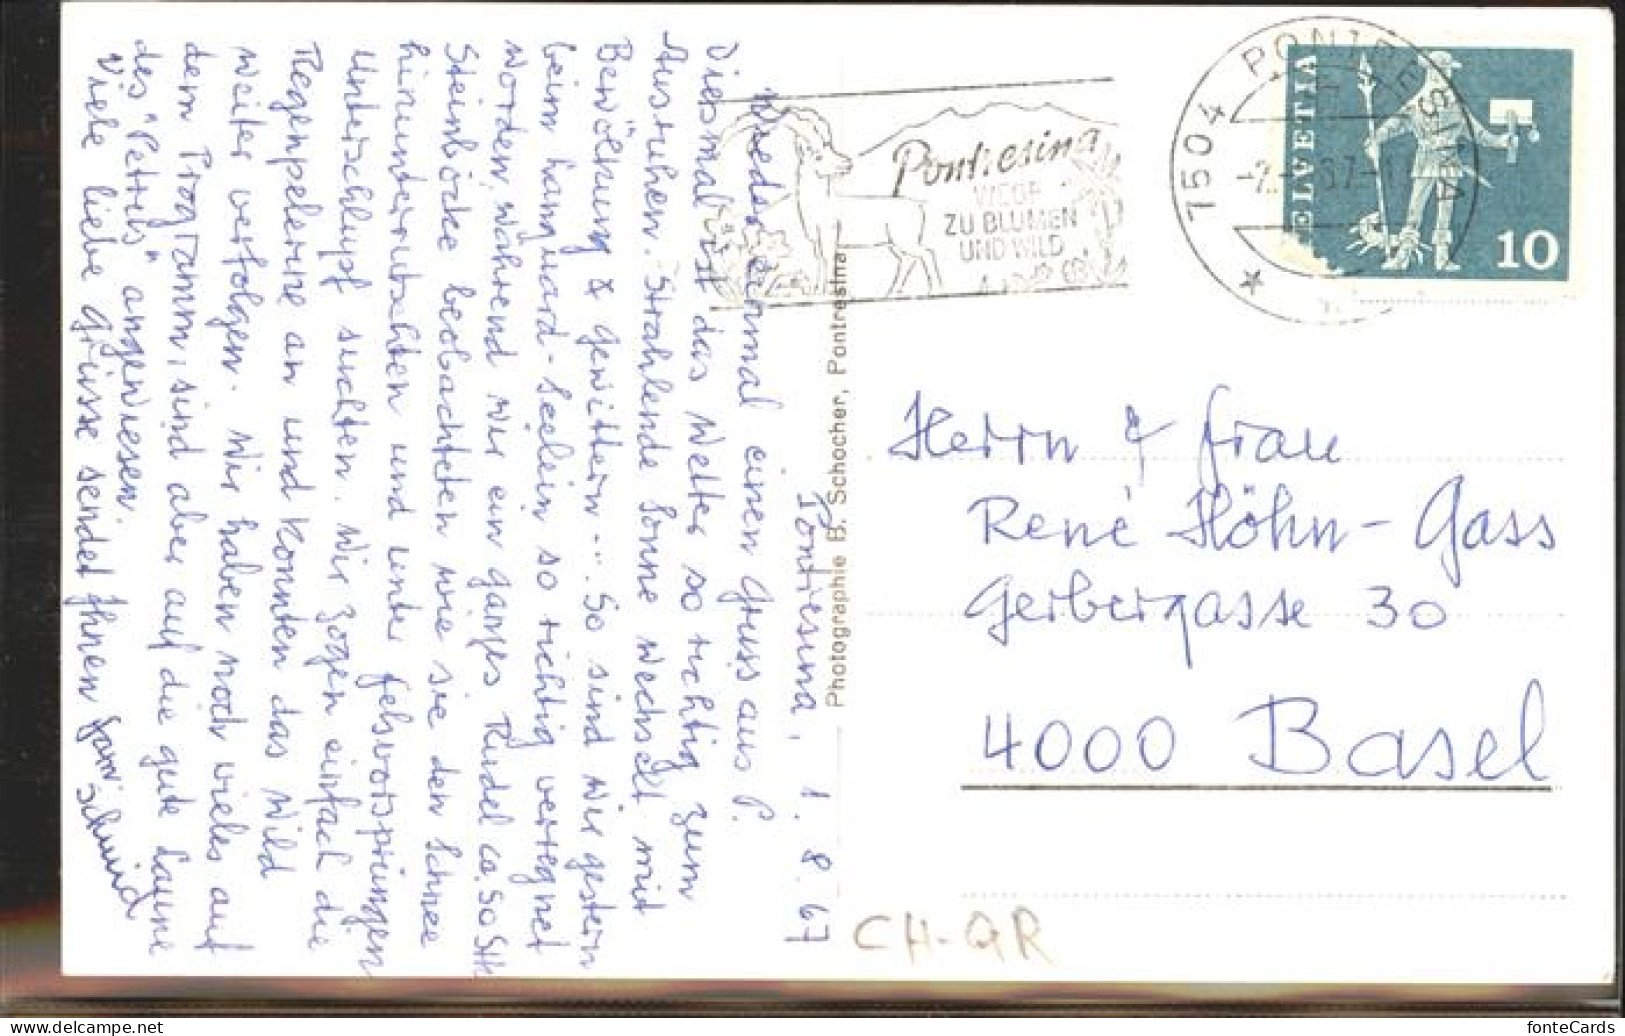 Pontresina, 1. 8. 67
Wieder einmal einen Gruss aus P.
Diesmal ist das Wetter so richtig zum
Ausruhen. Strahlende Sonne wechselt mit
Bewölkung & Gewittern... So sind wir gestern
beim Languard-Seelein so richtig verregnet
worden, während wir ein ganzes Rudel ca. 50 Stk
Steinböcke beobachteten wie sie den Schnee
hinunterrutschten und unter Felsvorsprüngen
Unterschlupf suchten. Wir zogen einfach die
Regenpelerine an und konnten das Wild
weiter verfolgen. Wir haben noch vieles auf
dem Programm, sind aber auf die gute Laune
des "Petrus" angewiesen.
Viele liebe Grüsse sendet Ihnen Fam Schmid
Photographie B. Schocher, Pontresina
Pontresina
WEGE
ZU BLUMEN
UND WILD
7504 PONTRESINA
HELVETIA
10
Herrn & Frau
René Höhn-Gass
Gerbergasse 30
4000 Basel
CH-GR
fonteCards
https://www.delcampe.net